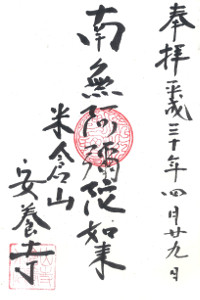 奉拝 平成三十年四月廿九日
南無阿彌陀如来
安養寺